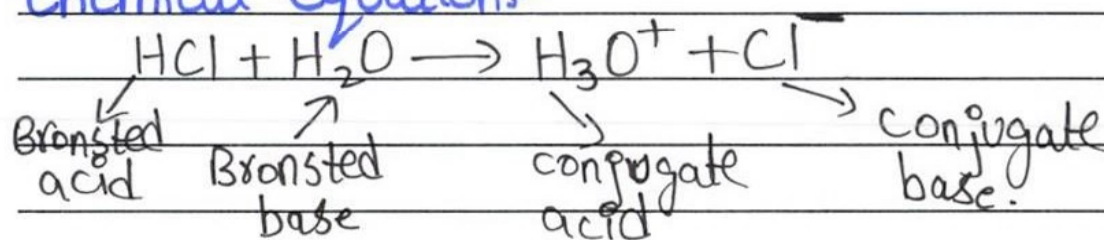 Chemical equations
HCl + H₂O ⟶ H₃O⁺ + Cl⁻
Bronsted acid
Bronsted base
conjugate acid
conjugate base.